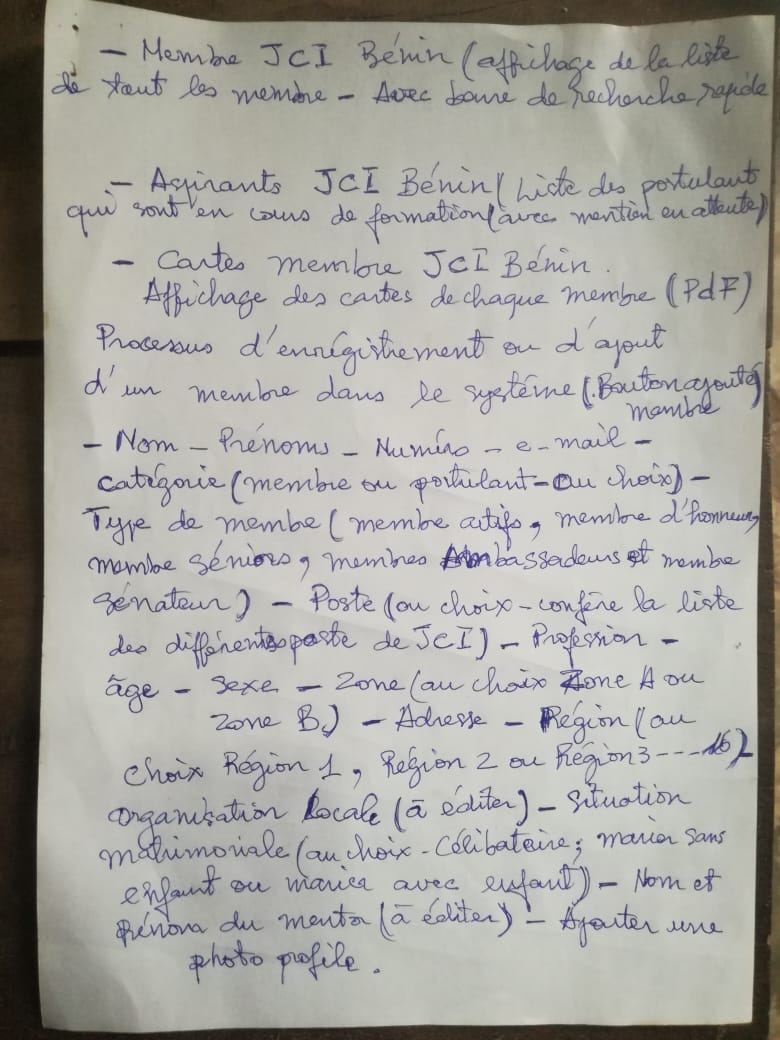 - Membre JCI Bénin (affichage de la liste
de tout les membre - Avec barre de recherche rapide
- Aspirants JCI Bénin (Liste des postulant
qui sont en cours de formation (avec mention en attente)
- Cartes membre JCI Bénin.
Affichage des cartes de chaque membre (PdF)
Processus d'enrégistrement ou d'ajout
d'un membre dans le système (Bouton ajouté
membre)
- Nom - Prénoms - Numéro - e-mail -
catégorie (membre ou postulant - Au choix) -
Type de membe (membe actifs, membre d'honneur,
membe séniors, membres Ambassadeurs et membe
sénateur) - Poste (au choix - confère la liste
des différents poste de JCI) - Profession -
âge - Sexe - Zone (au choix Zone A ou
Zone B.) - Adresse - Région (au
choix Région 1, Région 2 ou Région 3 ---- 16)
Organisation Locale (à éditer) - Situation
matrimoniale (au choix - Célibataire; marier sans
enfant ou marier avec enfant) - Nom et
Prénom du mentor (à éditer) - Ajouter une
photo profile.